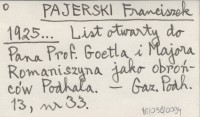 PAJERSKI Franciszek
1925... List otwarty do
Pana Prof. Goetla i Majora
Romaniszyna jako obroń-
ców Podhala. — Gaz. Podh.
13, nr 33.